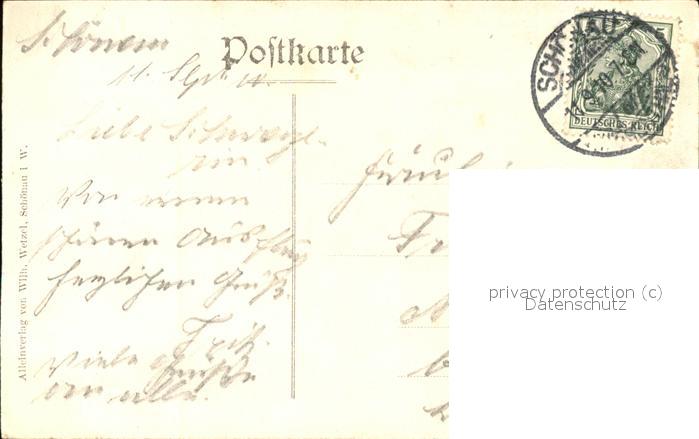 Schönau
Postkarte
11. Sept. 10.
Liebe Schwäge-
rin
Von einem
schönen Ausflug
herzlichen Gruß.
Fritz.
Viele Grüße
an alle.
Alleinverlag von Wilh. Wetzel, Schönau i W.
SCHÖNAU
9.10.7-8N
DEUTSCHES REICH
Fräul
privacy protection (c)
Datenschutz